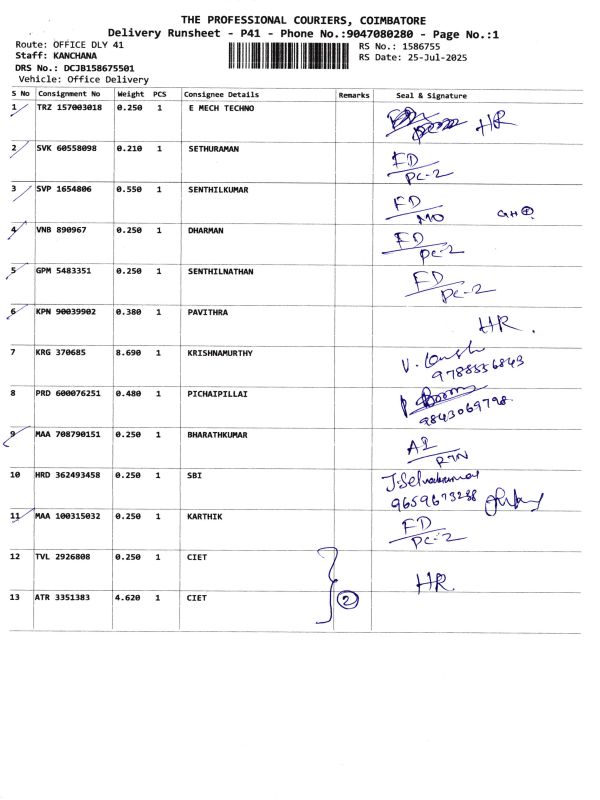 THE PROFESSIONAL COURIERS, COIMBATORE
Delivery Runsheet - P41 - Phone No.:9047080280 - Page No.:1
Route: OFFICE DLY 41 RS No.: 1586755
Staff: KANCHANA RS Date: 25-Jul-2025
DRS No.: DCJB158675501
Vehicle: Office Delivery
S No Consignment No Weight PCS Consignee Details Remarks Seal & Signature
1 TRZ 157003018 0.250 1 E MECH TECHNO HR
2 SVK 60558098 0.210 1 SETHURAMAN FD
PC-2
3 SVP 1654806 0.550 1 SENTHILKUMAR FD
MO
4 VNB 890967 0.250 1 DHARMAN FD
PC-2
5 GPM 5483351 0.250 1 SENTHILNATHAN FD
PC-2
6 KPN 90039902 0.380 1 PAVITHRA HR.
7 KRG 370685 8.690 1 KRISHNAMURTHY
9788556843
8 PRD 600076251 0.480 1 PICHAIPILLAI
9843069798
9 MAA 708790151 0.250 1 BHARATHKUMAR AI
RTN
10 HRD 362493458 0.250 1 SBI J. Selvakumar
9659673288
11 MAA 100315032 0.250 1 KARTHIK FD
PC-2
12 TVL 2926808 0.250 1 CIET HR.
13 ATR 3351383 4.620 1 CIET 2